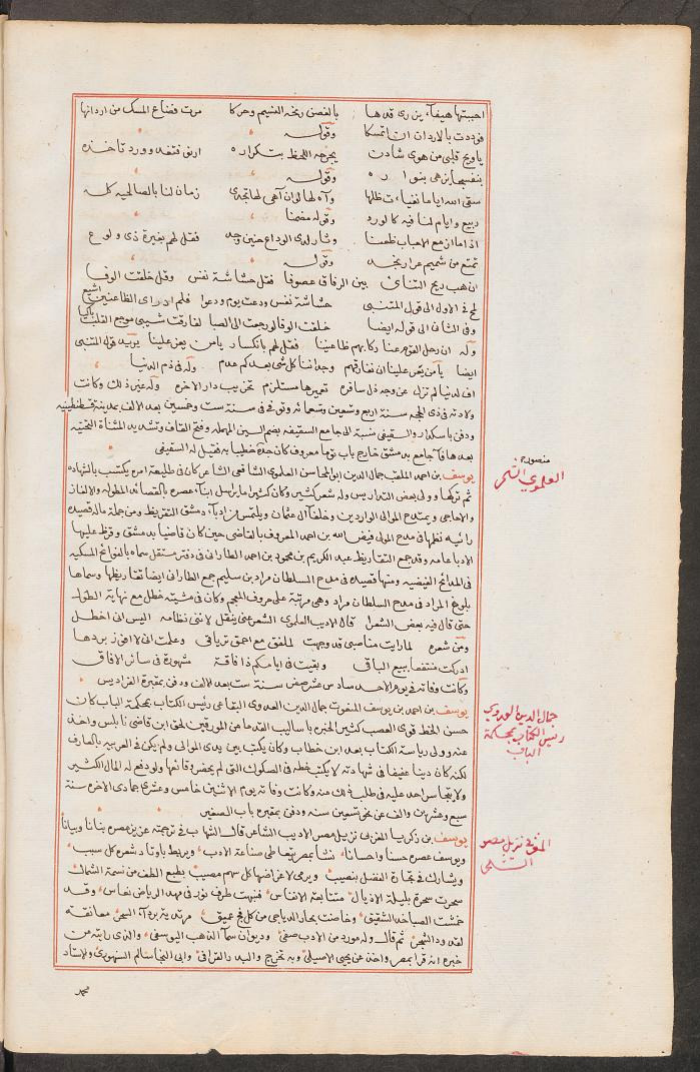 احببتها هيفاء يزري قدها بالغصن رنحه النسيم وحركا مرت فضاع المسك من اردانها
فوددت بالاردان ان اتمسكا وقوله
ياويح قلبي من هوى شادن يجرحه اللحظ بتكراره ارنو فتغدو وردتا خده
بنفسجا يزهى بنواره وقوله
سقى الله اياما تفيأت ظلها وآه لها لو ان آهي لها تجدي زمان لنا بالصالحية كله
ربيع وايام لنا فيه كالورد وقوله مضمنا
اذا ما زمع الاحباب ظعنا وثار لدى الوداع حنين وجد فقل لهم بغيرة ذي ولوع
تمتع من شميم عرار نجد وقوله
ان هب ريح التنائي بين الرفاق عصوفا فقل حشاشة نفس وقل خلقت الوفا
لمح في الاول الى قول المتنبي حشاشة نفس ودعت يوم ودعوا فلم ادر اي الظاعنين اشيع
وفي الثاني الى قوله ايضا خلقت الوفا لو رجعت الى الصبا لفارقت شيبي موجع القلب باكيا
وله ان رحل القوم عنا ركابهم ظاعينا فقل لهم بانكسار يا من يعز علينا يريد قول المتنبي
ايضا يا من يعز علينا ان نفارقهم وجداننا كل شي بعدكم عدم وله في ذم الدنيا
اف لدنيا لم تزل عن وجه ذل سافره تعميرها مستلزم تخريب دار الآخره وله غير ذلك وكانت
ولادته في ذي الحجه سنة اربع وتسعين وتسعمائة وتوفي في سنة ست وخمسين بعد الالف بمدينة قسطنطينية
ودفن باسكدار والسقيفي نسبة الى جامع السقيفه بضم السين المهمله وفتح القاف وتشديد المثناة التحتية
بعدها فاء جامع بدمشق خارج باب توما معروف كان جده خطيبا به فقيل له السقيفي
يوسف بن احمد الملقب جمال الدين ابو المحاسن العلوي الشافعي الشاعر كان في طليعة امره يكتسب بالشهاده
ثم تركها وولي بعض التداريس وله شعر كثير وكان كثيرا ما يراسل ابناء عصره بالقصائد المطولة والالغاز
والاحاجي ويمتدح الموالي الواردين وخلفاء آل عثمان ويلتمس من ادباء دمشق التقريظ ومن جملة ماله قصيده
رائيه نظمها في مدح المولى فيض الله بن احمد المعروف بالقاضي حين كان قاضيا بدمشق وقرظ عليها
الادبا عامه وقد جمع التقاريظ عبد الكريم بن محمود بن احمد الطاراني في دفتر مستقل سماه بالفوائح المسكيه
في المدائح الفيضيه ومنها قصيده في مدح السلطان مراد بن سليم جمع الطاراني ايضا تقاريظها وسماها
بلوغ المراد في مدح السلطان مراد وهي مرتبة على حروف المعجم وكان في مشيته خطل مع نهاية الطول
حتى قال فيه بعض الشعرا قال الاديب العلوي الشعر عني ينقل لانني نظامه اليس اني اخطل
ومن شعره لما رايت مناصبي قد وجهت لملفق مع احمق ترياقي وعلمت اني لا افوز بردها
ادركت منتفعا ببيع الباقي وبقيت في ايامكم ذا فاقة مشهورة في سائر الافاق
وكانت وفاته في يوم الاحد سادس عشر صفر سنة ست بعد الالف ودفن بمقبرة الفراديس
يوسف بن احمد بن يوسف المنعوت جمال الدين العدوي البقاعي رئيس الكتاب بمحكمة الباب كان
حسن الخط قوي العصب كثير الخبره باساليب القدما من الموريقين لحق ابن قاضي نابلس واخذ
عنه وولي رياسة الكتاب بعد ابن خطاب وكان يكتب بين يدي الموالي ولم يكن في العربيه بالعارف
لكنه كان دينا عفيفا في شهادته لا يكتب خطه في الصكوك التي لم يحضر وقائعها ولو دفع له المال الكثير
ولا يتجاسر احد عليه في طلب ذلك منه وكانت وفاته يوم الاثنين خامس وعشري جمادي الآخره سنة
سبع وعشرين والف عن نحو تسعين سنه ودفن بمقبرة باب الصغير
يوسف بن زكريا المغربي نزيل مصر الاديب الشاعر قال الشهاب في ترجمته عزيز مصره بنانا وبيانا
ويوسف عصره حسنا واحسانا نشا بمصر يتعاطى صناعة الادب ويربط باوتاد شعره كل سبب
ويشارك في تجارة الفضل بنصيب ويرمي لاغراضها كل سهم مصيب بطبع الطف من نسمة الشمال
سحرت سحرة بليلة الاذيال متتابعة الانفاس فنبهت طرف نور في مهد الرياض نعاس وقد
خمشت الصبا خد الشقيق وخاضت بحار الدياجي من كل فج عميق مرتديه برداء السحر معانقه
لقدود الشجر ثم قال وله مورد من الادب صفي وديوان سماه الذهب اليوسفي والذي رايته من
خبره انه قرا بمصر واخذ عن يحيى الاصيلي وبه تخرج والبدر القرافي وابي النجا سالم السنهوري والاستاد
محمد
منصوره
العلوي الشاعر
جمال الدين العدوي
رئيس الكتاب بمحكمة
الباب
المغربي نزيل مصر